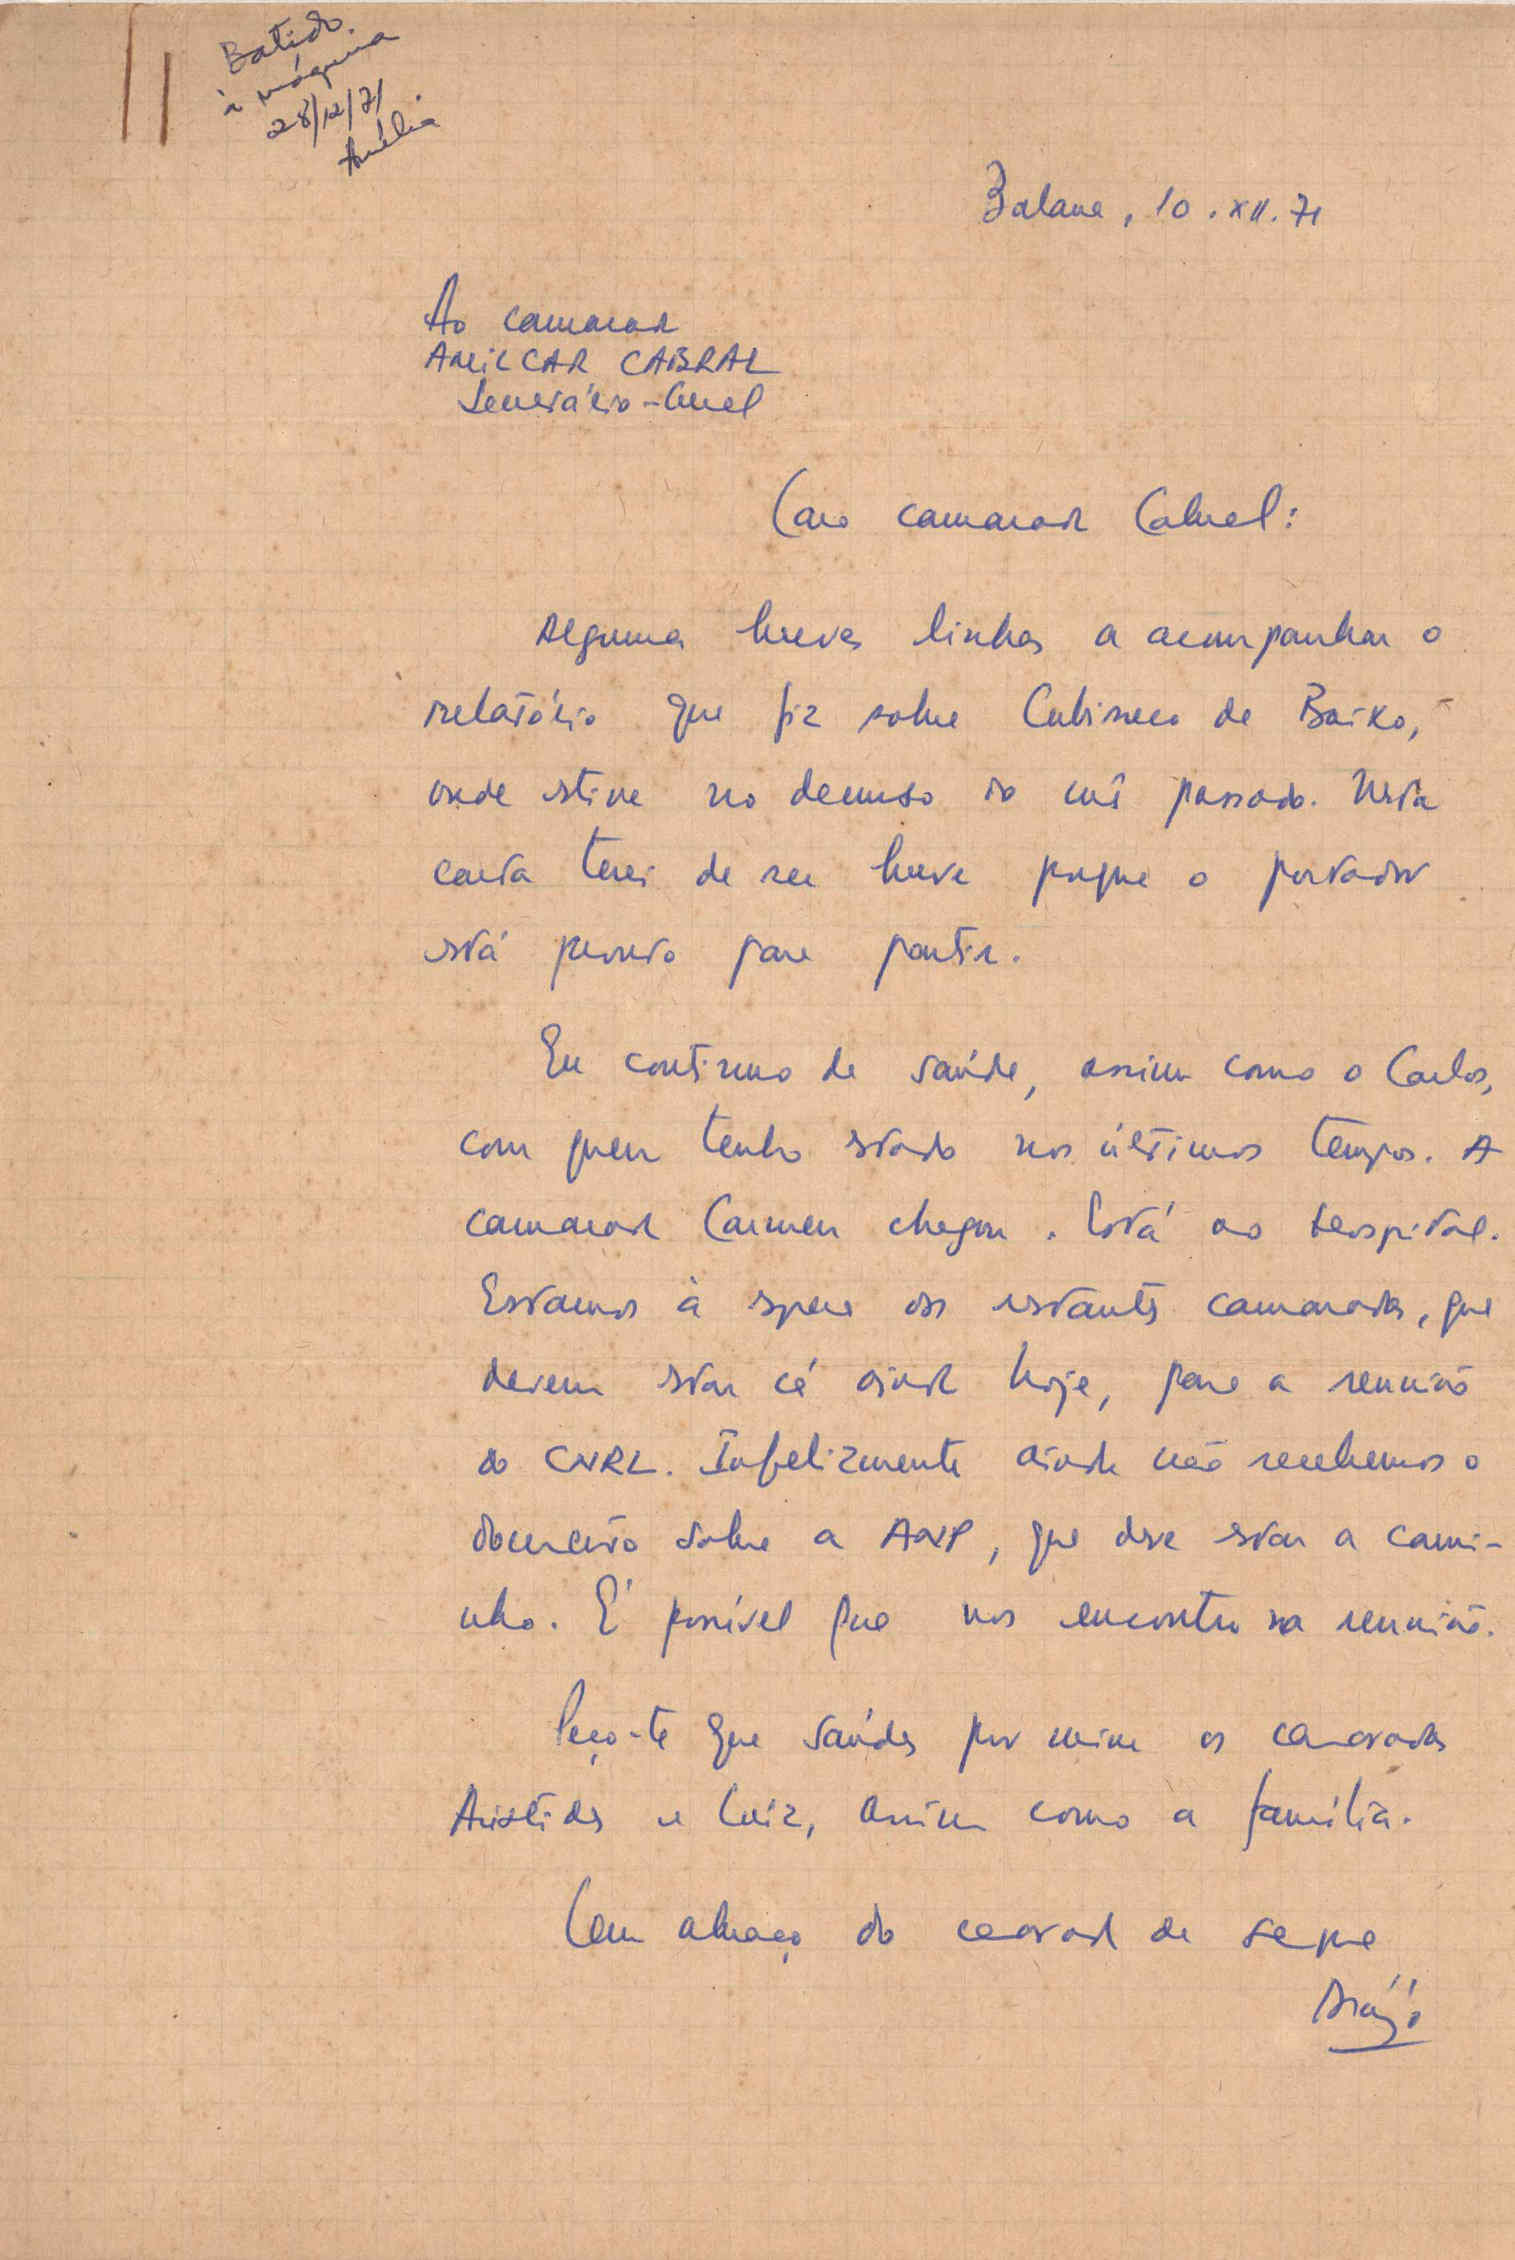 Batido
à máquina
28/12/71
Amélia
Balana, 10.XII.71
Ao camarada
AMILCAR CABRAL
Secretário-Geral
Caro camarada Cabral:
Algumas breves linhas a acompanhar o
relatório que fiz sobre Cubisseco de Baixo,
onde estive no decurso do mês passado. Nesta
carta terei de ser breve porque o portador
está pronto para partir.
Eu continuo de saúde, assim como o Carlos,
com quem tenho estado nos últimos tempos. A
camarada Carmen chegou. Está no hospital.
Estamos à espera dos restantes camaradas, que
devem estar cá ainda hoje, para a reunião
do CNRL. Infelizmente ainda não recebemos o
documento sobre a ANP, que deve estar a cami-
nho. É possível que nos encontre na reunião.
Peço-te que saúdes por mim os camaradas
Aristides e Luiz, assim como a família.
Com abraço do camarada de sempre
Araújo